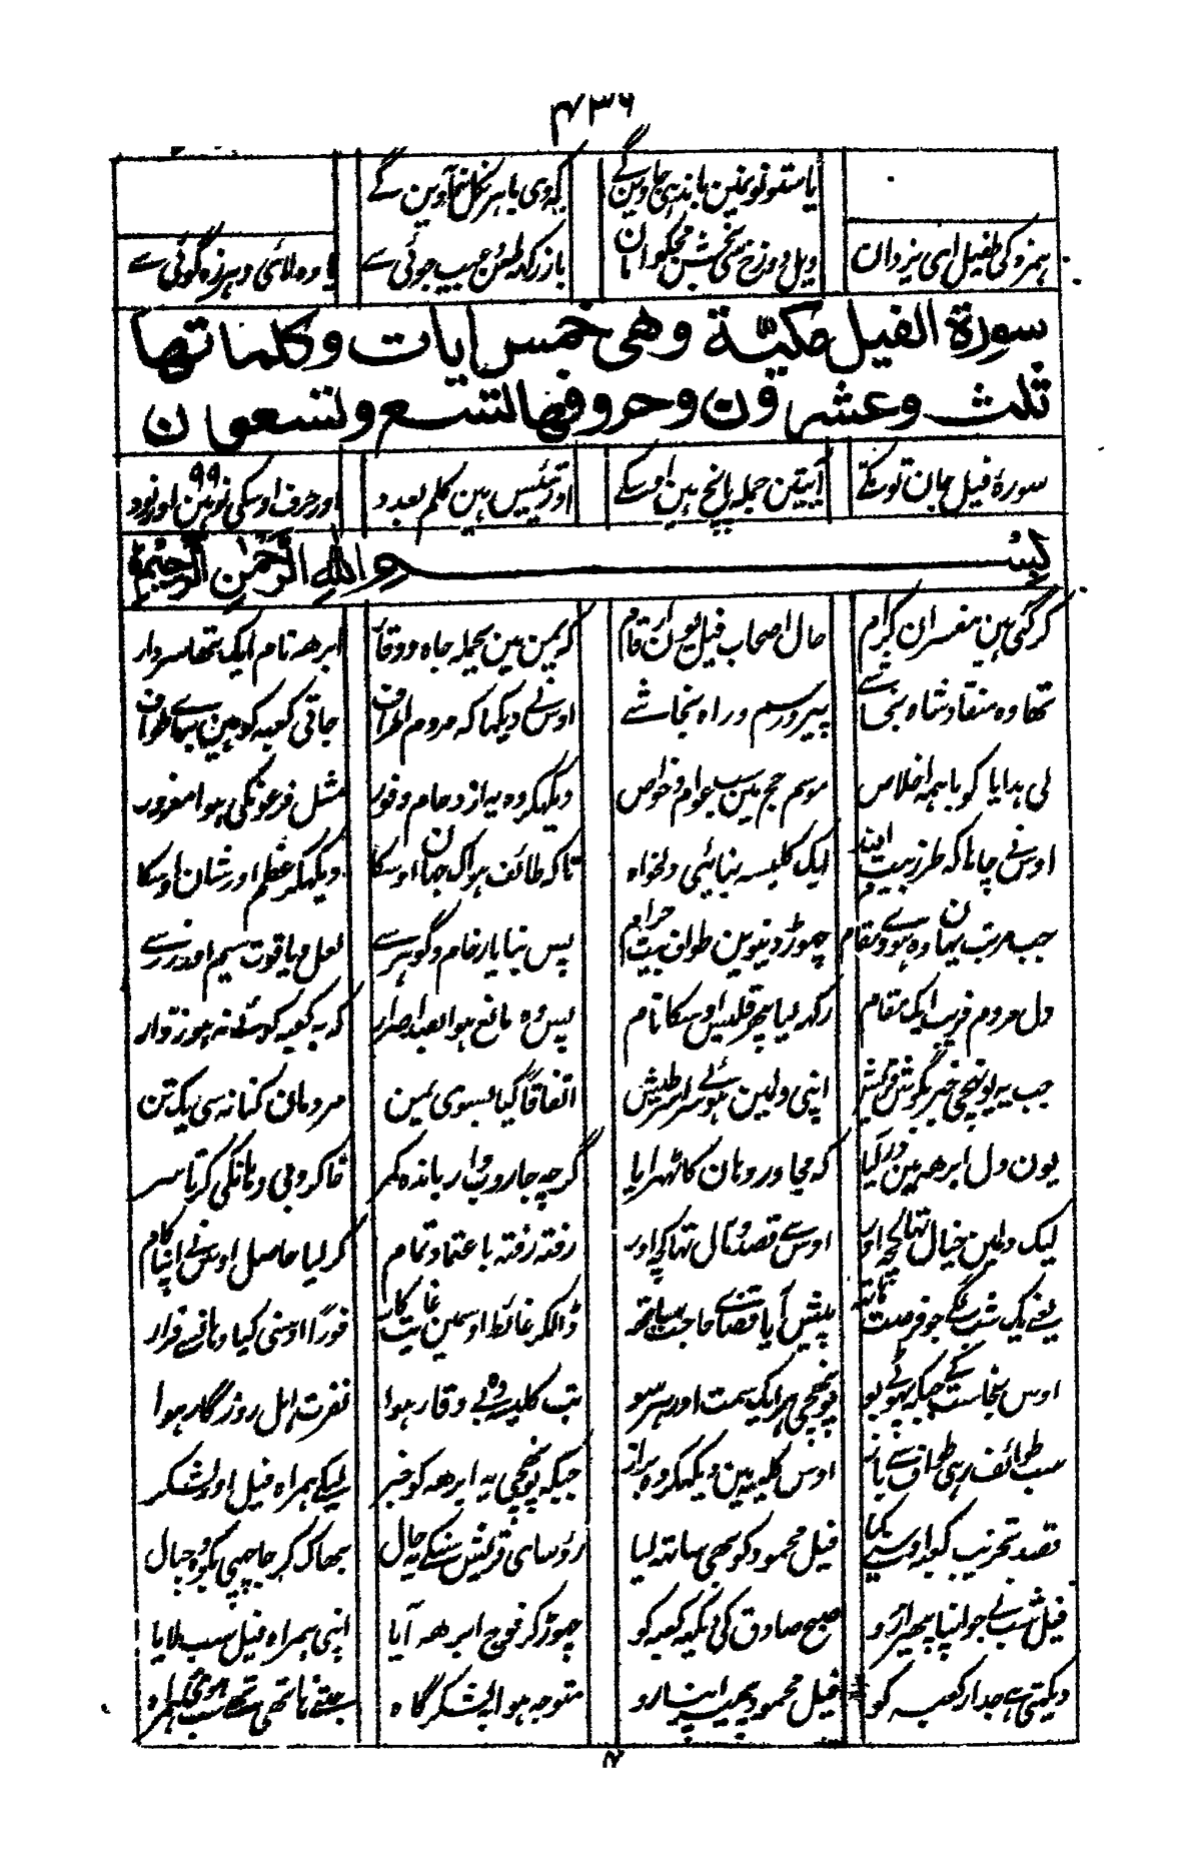 ۷۳۶
یا ستونونمین باندہی جاوین گے کہ وی باہر نکل نہ آوین گے
ہمزہ کی طفیل ای یزدان ویل دوزخ سی بخش مجکو امان باز رکھ طعن عیب جوئی سے یاوہ لائی و ہرزہ گوئی سے
سورة الفیل مکیّة وهی خمس ایات وکلماتها
ثلث وعشرون وحروفها تسع وتسعون
سورۂ فیل جان تو مکے آیتین جملہ پانچ ہین اوسکے اور تیئیس ہین کلم بعدد اور حرف اوسکی نو ہین اور نود ۹۹
بسم الله الرحمن الرحیم
کر گئی ہین مفسران کرام حال اصحاب فیل یون ارقام کہ یمن مین بحملہ جاہ و وقار ابرہہ نام ایک تھا سردار
تھا وہ منقاد شاہ نجاشے پیرو رسم و راہ نجاشے اوسنے دیکہا کہ مردم اطراف جاتی کعبہ کو ہین برائے طواف
لی ہدایا کو باہمہ اخلاص موسم حج مین سب عوام و خواص دیکہکر وہ یہ ازدحام وفور مثل فرعونکی ہوا مغرور
اوسنے چاہا کہ طرز بیت اللہ ایک کلیسہ بنائیی دلخواہ تاکہ طائف ہو اک جہان اوسکا دیکہکر عظم اور شان اوسکا
جب مرتب یہان وہ ہووے مقام چھوڑ دیوین طواف بیت حرام پس بنایا رخام و گوہر سے لعل و یاقوت سیم اور زر سے
دل مردم فریب ایک مقام رکہدیا پھر قلیس اوسکا نام پس وہ مانع ہوا بصد اصرار کہ بہ کعبہ کوئے نہ ہو زوار
جب یہ پونہچی خبر بگوش قریش اپنی دلمین ہوئے سراسر طیش اتفاقاً گیا بسوی یمن مردمان کنانہ سی یک تن
یون دل ابرہہ مین در آیا کہ مجاور وہان کا ٹھہرایا گرچہ جاروب وار باندہ کمر خاکروبی وہانکی کرتا سر
لیک دلمین خیال تھا کچھ اور اوسے قصد و مآل تھا کچھ اور رفتہ رفتہ باعتماد تمام کر لیا حاصل اوسنے اپنا کام
یعنے یک شب جو فرصت پیش آیا قضائے حاجت ساتھ ڈالکر غائط اوسمین غایت کار فوراً اوسنی کیا وہانسے فرار
اوس نجاست کے جبکہ پہوٹے بو پونہچی ہر ایک سمت اور ہر سو تب کلیسہ وہ بے وقار ہوا نفرت اہل روزگار ہوا
سب طوائف رہی طواف سے باز اوس کلیسہ مین دیکہکر وہ براز جبکہ پونہچی یہ ابرہہ کو خبر لیکے ہمراہ فیل اور لشکر
قصد تخریب کعبہ اوسنے کیا فیل محمود کو بھی ساتھ لیا رؤسای قریش سنکے یہ حال بھاگ کر جا چھپی بکوہ جبال
فیل شب نے جو اپنا پھیرا رو صبح صادق کی دیکہہ کعبہ کو چھوڑ کر فوج ابرہہ آیا اپنی ہمراہ فیل سب لایا
دیکھتی ہے جدار کعبہ کو فیل محمود پھیر اپنا رو متوجہ ہوا بلشکر گاہ جتنے ہاتھی تھے سب ہوئی ہمراہ